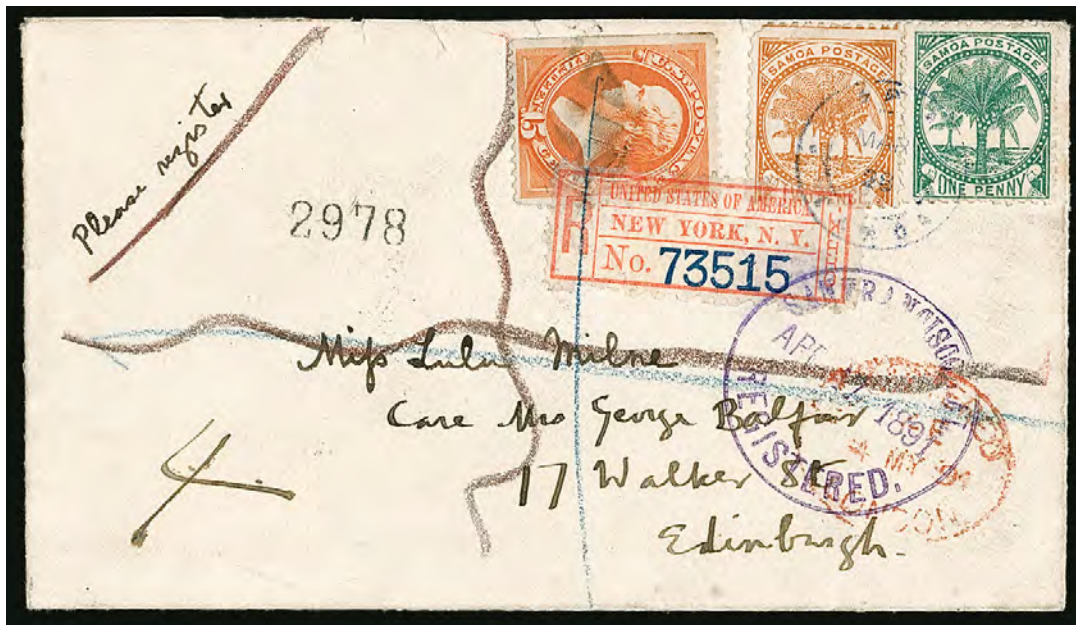 Please register
2978
U.S. POSTAGE
15
SAMOA POSTAGE
SAMOA POSTAGE
ONE PENNY
UNITED STATES OF AMERICA
NEW YORK, N. Y.
R
No. 73515
MAR
SAN FRANCISCO
APR 17 1891
REGISTERED.
LONDON
4 MY 91
Miss Lulu Milne
Care Mrs George Balfour
17 Walker St.
Edinburgh.